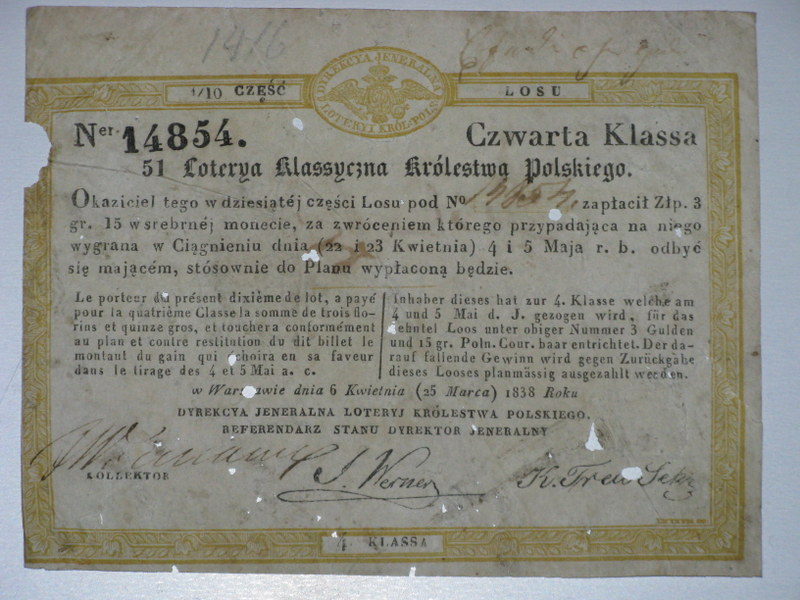 1416
DYREKCYA JENERALNA
LOTERYJ KRÓL-POLS.
1/10 CZĘŚĆ
LOSU
Ner. 14854.
Czwarta Klassa
51 Loterya Klassyczna Królestwa Polskiego.
Okaziciel tego w dziesiątéj części Losu pod No 14854. zapłacił Złp. 3
gr. 15 w srebrnéj monecie, za zwróceniem którego przypadająca na niego
wygrana w Ciągnieniu dnia (22 i 23 Kwietnia) 4 i 5 Maja r. b. odbyć
się mającém, stósownie do Planu wypłaconą będzie.
Le porteur du présent dixième de lot, a payé
pour la quatrième Classe la somme de trois flo-
rins et quinze gros, et touchera conformément
au plan et contre restitution du dit billet le
montant du gain qui échoira en sa faveur
dans le tirage des 4 et 5 Mai a. c.
Inhaber dieses hat zur 4. Klasse welche am
4 und 5 Mai d. J. gezogen wird, für das
zehntel Loos unter obiger Nummer 3 Gulden
und 15 gr. Poln. Cour. baar entrichtet. Der da-
rauf fallende Gewinn wird gegen Zurückgabe
dieses Looses planmässig ausgezahlt werden.
w Warszawie dnia 6 Kwietnia (25 Marca) 1838 Roku
DYREKCYA JENERALNA LOTERYJ KRÓLESTWA POLSKIEGO.
REFERENDARZ STANU DYREKTOR JENERALNY
KOLLEKTOR
J. Werner
4. KLASSA